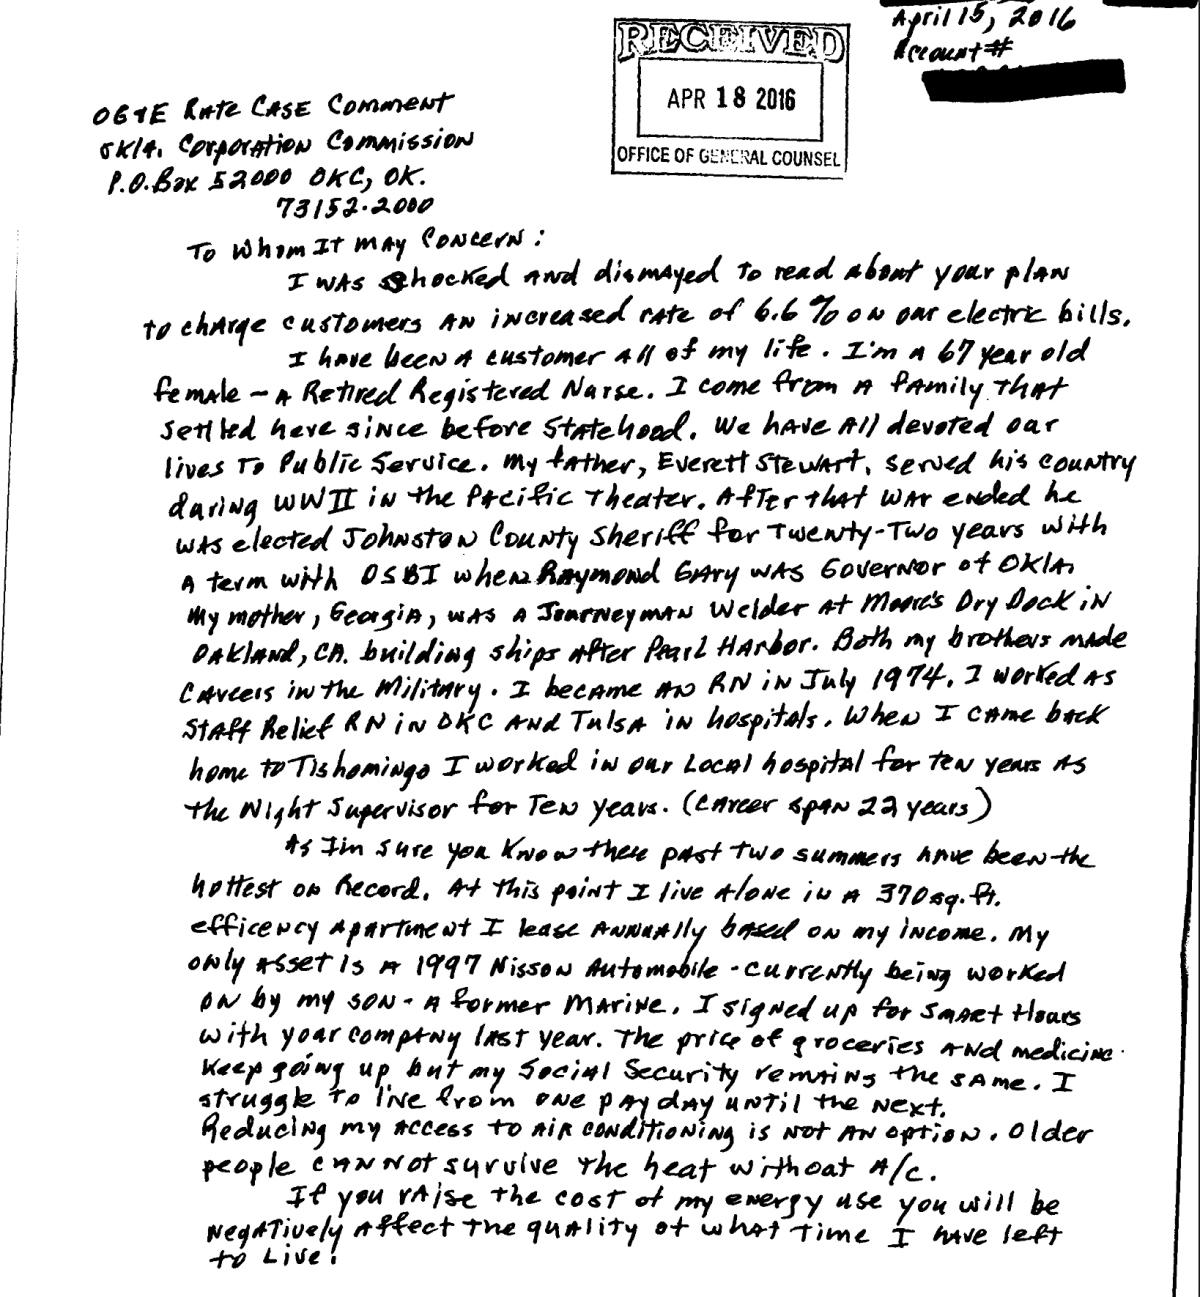 April 15, 2016
Account #
RECEIVED
APR 18 2016
OFFICE OF GENERAL COUNSEL
OG&E Rate Case Comment
Okla. Corporation Commission
P.O. Box 52000 OKC, OK.
73152-2000
To Whom It May Concern:
I was shocked and dismayed to read about your plan
to charge customers an increased rate of 6.6% on our electric bills.
I have been a customer all of my life. I'm a 67 year old
female - a Retired Registered Nurse. I come from a family that
settled here since before Statehood. We have all devoted our
lives to Public Service. My father, Everett Stewart, served his country
during WWII in the Pacific Theater. After that war ended he
was elected Johnston County Sheriff for Twenty-Two years with
a term with OSBI when Raymond Gary was Governor of Okla.
My mother, Georgia, was a Journeyman Welder at Moore's Dry Dock in
Oakland, CA. building ships after Pearl Harbor. Both my brothers made
careers in the Military. I became an RN in July 1974. I worked as
Staff Relief RN in OKC and Tulsa in hospitals. When I came back
home to Tishomingo I worked in our Local hospital for ten years as
the Night Supervisor for Ten years. (Career span 22 years)
As I'm sure you know these past two summers have been the
hottest on Record. At this point I live alone in a 370 sq. ft.
efficency apartment I lease annually based on my income. My
only asset is a 1997 Nisson Automobile - currently being worked
on by my son - a former Marine. I signed up for Smart Hours
with your company last year. The price of groceries and medicine
keep going up but my Social Security remains the same. I
struggle to live from one payday until the next.
Reducing my access to air conditioning is not an option. Older
people cannot survive the heat without A/C.
If you raise the cost of my energy use you will be
negatively affect the quality of what time I have left
to Live!